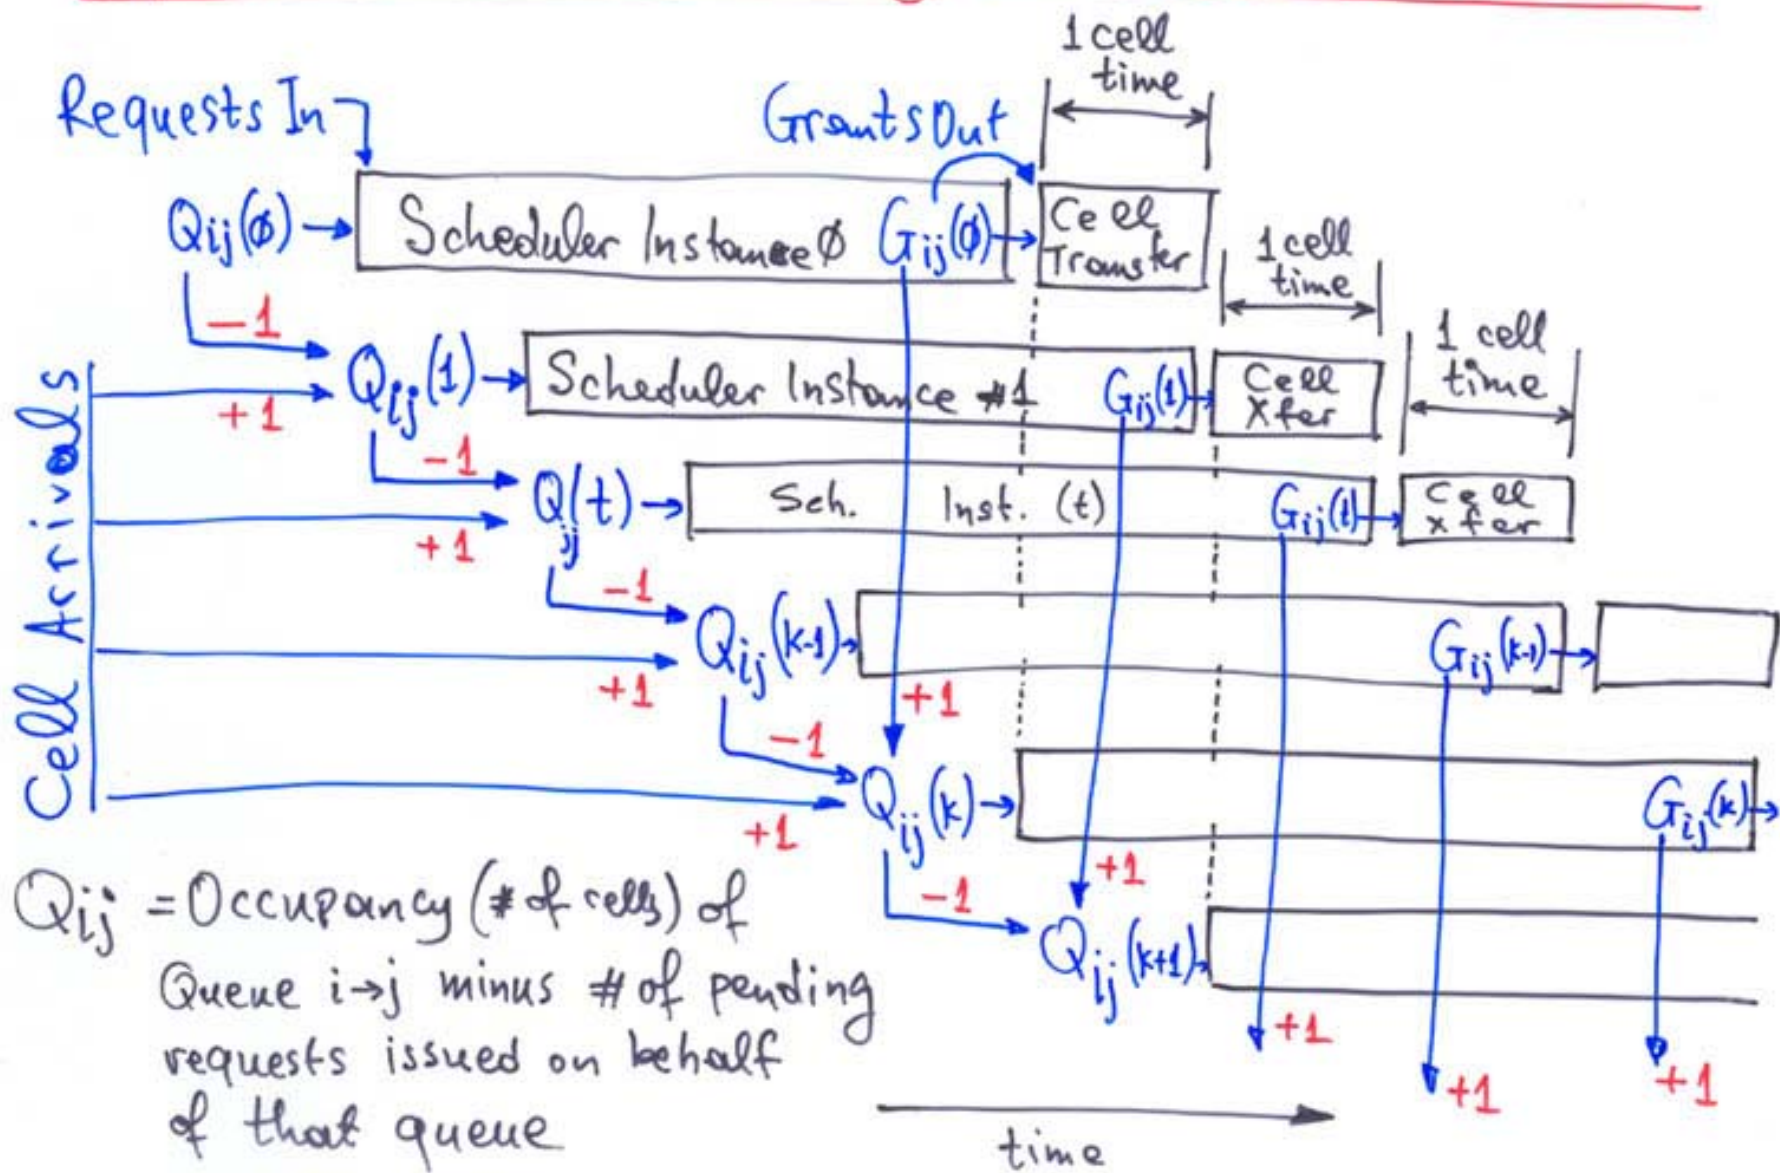 1 cell
time
Requests In
Grants Out
Qij(ø)
Scheduler Instance ø
Gij(ø)
Cell
Transfer
1 cell
time
-1
Qij(1)
Scheduler Instance #1
Gij(1)
Cell
Xfer
1 cell
time
+1
-1
Qij(t)
Sch. Inst. (t)
Gij(t)
Cell
xfer
+1
-1
Qij(k-1)
Gij(k-1)
+1
+1
-1
Qij(k)
Gij(k)
+1
+1
-1
Qij(k+1)
+1
+1
+1
Cell Arrivals
Qij = Occupancy (# of cells) of
Queue i→j minus # of pending
requests issued on behalf
of that queue
time